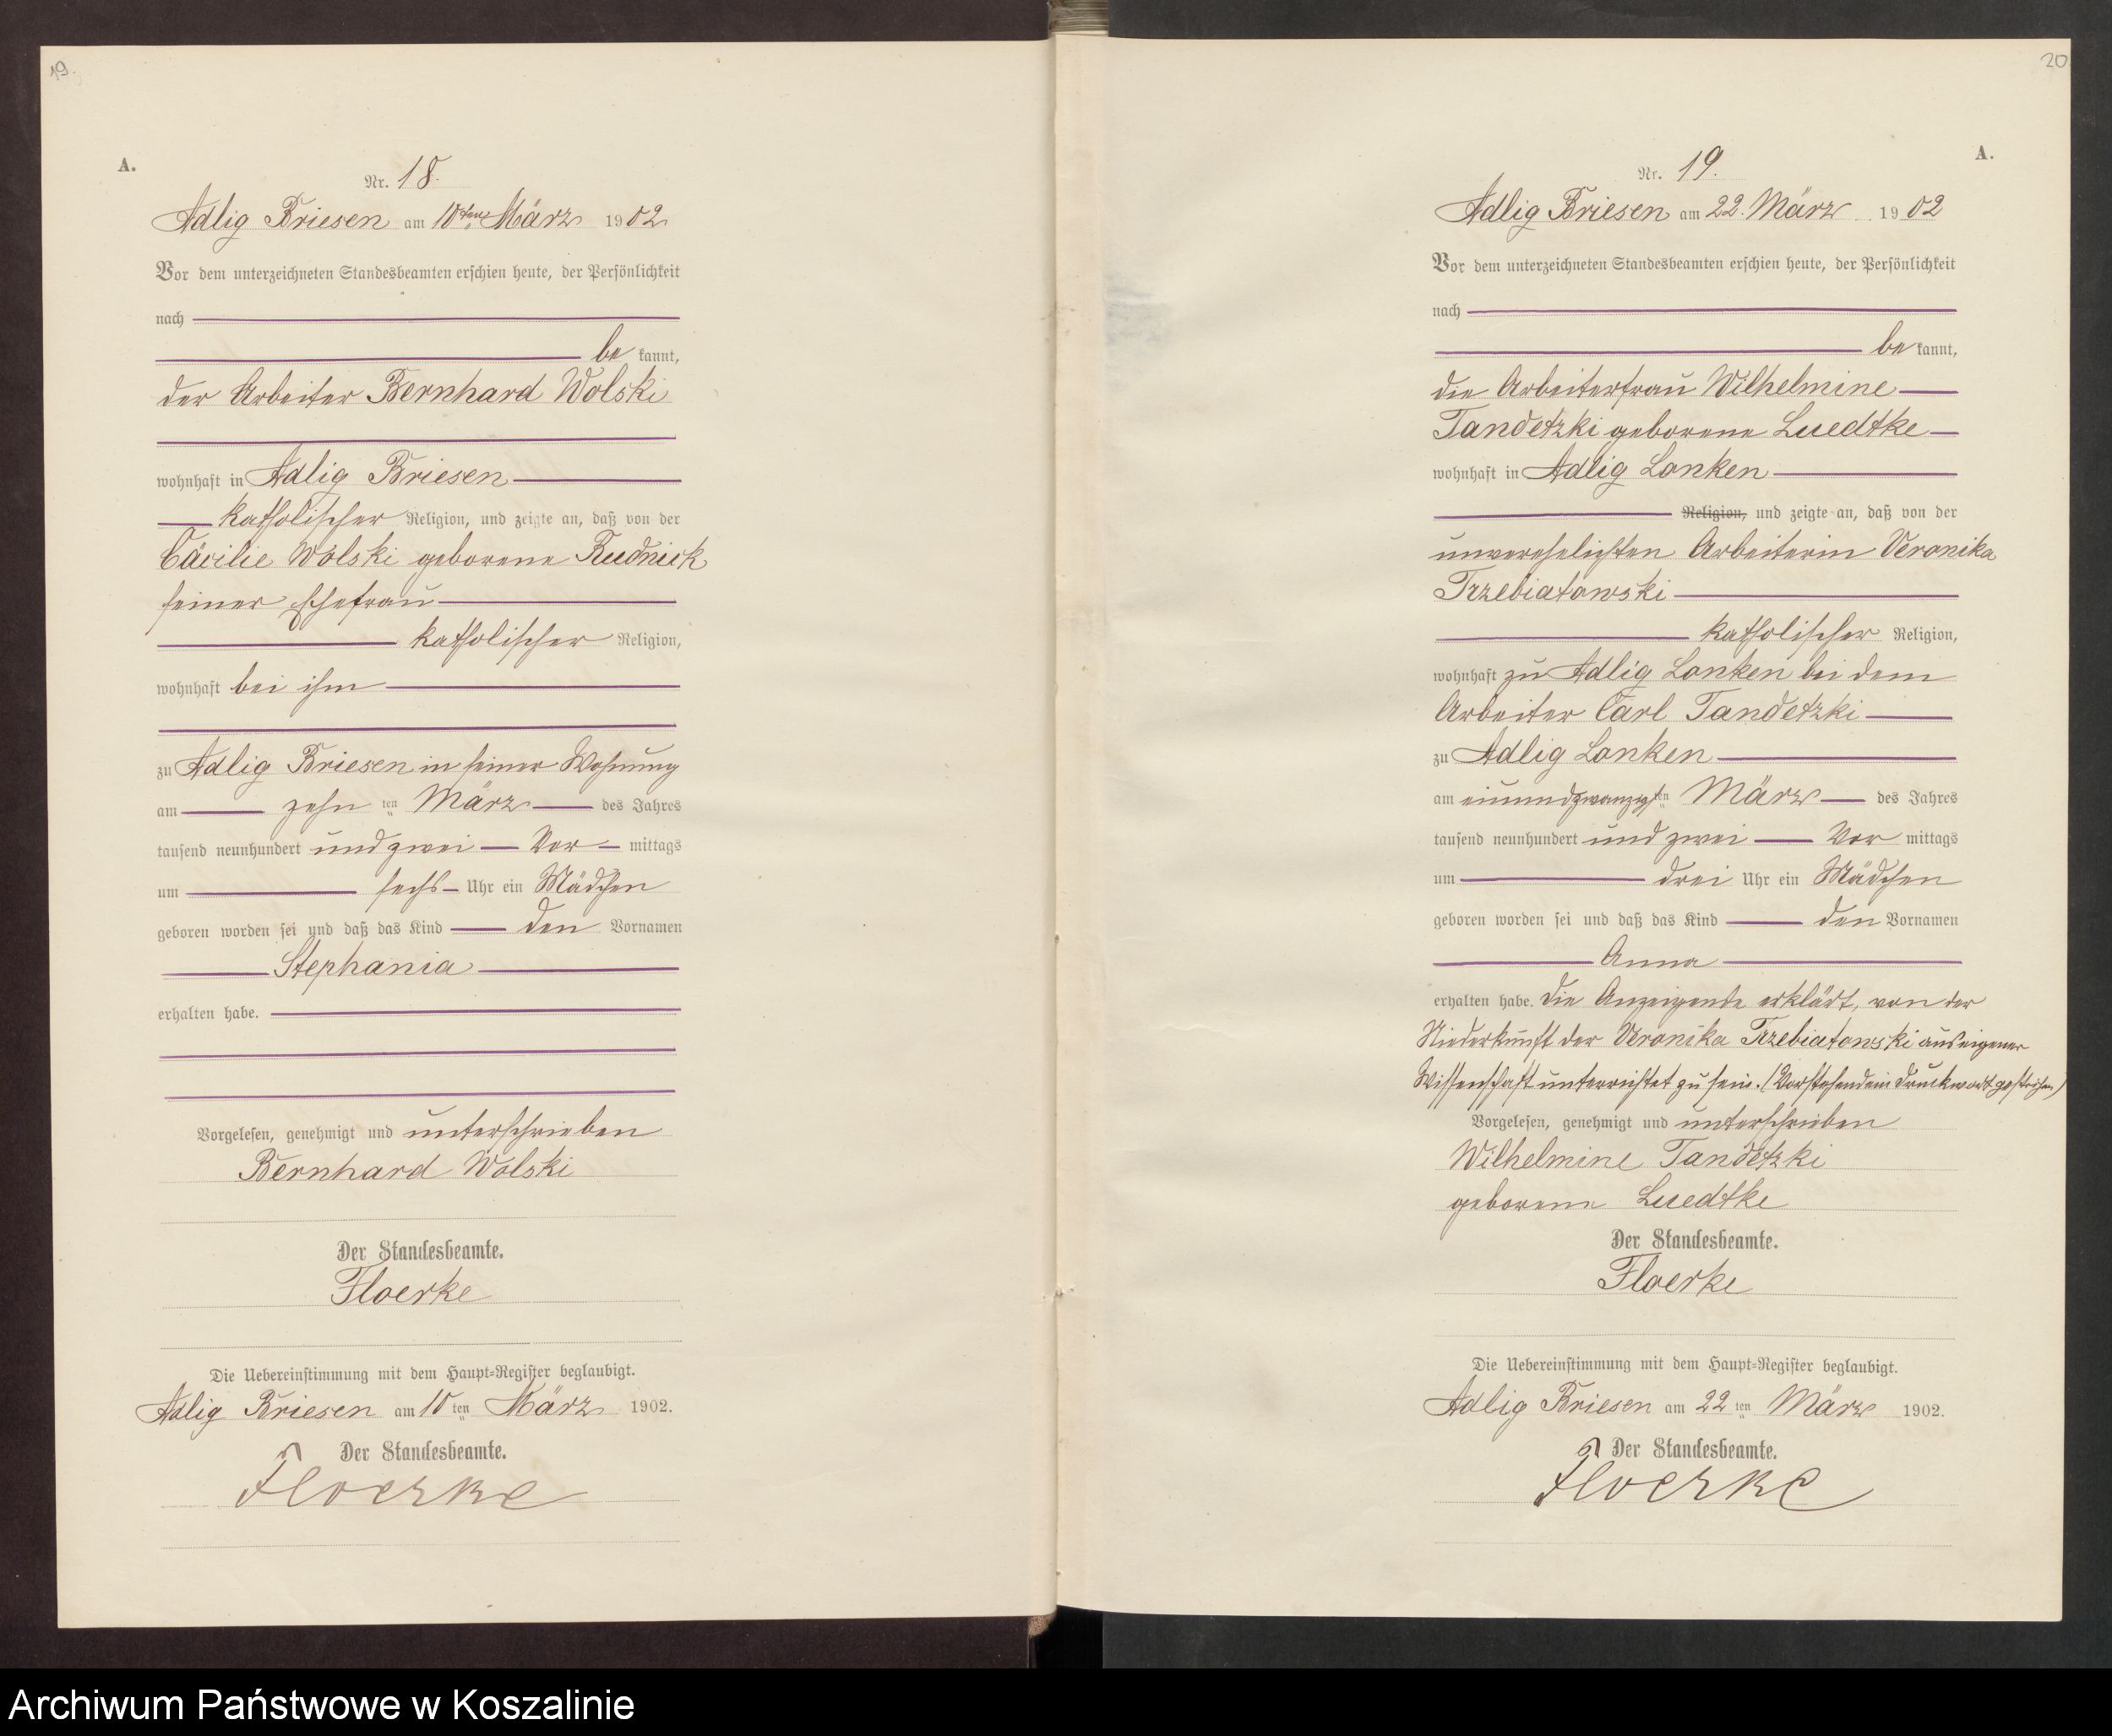 19.
A.
Nr. 18.
Adlig Briesen am 10ten März 1902
Vor dem unterzeichneten Standesbeamten erschien heute, der Persönlichkeit
nach
be kannt,
der Arbeiter Bernhard Wolski
wohnhaft in Adlig Briesen
katholischer Religion, und zeigte an, daß von der
Cäcilie Wolski geborene Rudnick
seiner Ehefrau
katholischer Religion,
wohnhaft bei ihm
zu Adlig Briesen in seiner Wohnung
am zehn ten März des Jahres
tausend neunhundert und zwei Vor mittags
um sechs Uhr ein Mädchen
geboren worden sei und daß das Kind den Vornamen
Stephania
erhalten habe.
Vorgelesen, genehmigt und unterschrieben
Bernhard Wolski
Der Standesbeamte.
Floerke
Die Uebereinstimmung mit dem Haupt=Register beglaubigt.
Adlig Briesen am 10 ten März 1902.
Der Standesbeamte.
Floerke
20
A.
Nr. 19.
Adlig Briesen am 22. März 1902
Vor dem unterzeichneten Standesbeamten erschien heute, der Persönlichkeit
nach
be kannt,
die Arbeiterfrau Wilhelmine
Tandetzki geborene Luedtke
wohnhaft in Adlig Lonken
Religion, und zeigte an, daß von der
unverehelichten Arbeiterin Veronika
Trzebiatowski
katholischer Religion,
wohnhaft zu Adlig Lonken bei dem
Arbeiter Carl Tandetzki
zu Adlig Lonken
am einundzwanzigsten März des Jahres
tausend neunhundert und zwei Vor mittags
um drei Uhr ein Mädchen
geboren worden sei und daß das Kind den Vornamen
Anna
erhalten habe. Die Anzeigende erklärt, von der
Niederkunft der Veronika Trzebiatowski aus eigener
Wissenschaft unterrichtet zu sein. (Vorstehend ein Druckwort gestrichen)
Vorgelesen, genehmigt und unterschrieben
Wilhelmine Tandetzki
geborene Luedtke
Der Standesbeamte.
Floerke
Die Uebereinstimmung mit dem Haupt=Register beglaubigt.
Adlig Briesen am 22 ten März 1902.
Der Standesbeamte.
Floerke
Archiwum Państwowe w Koszalinie